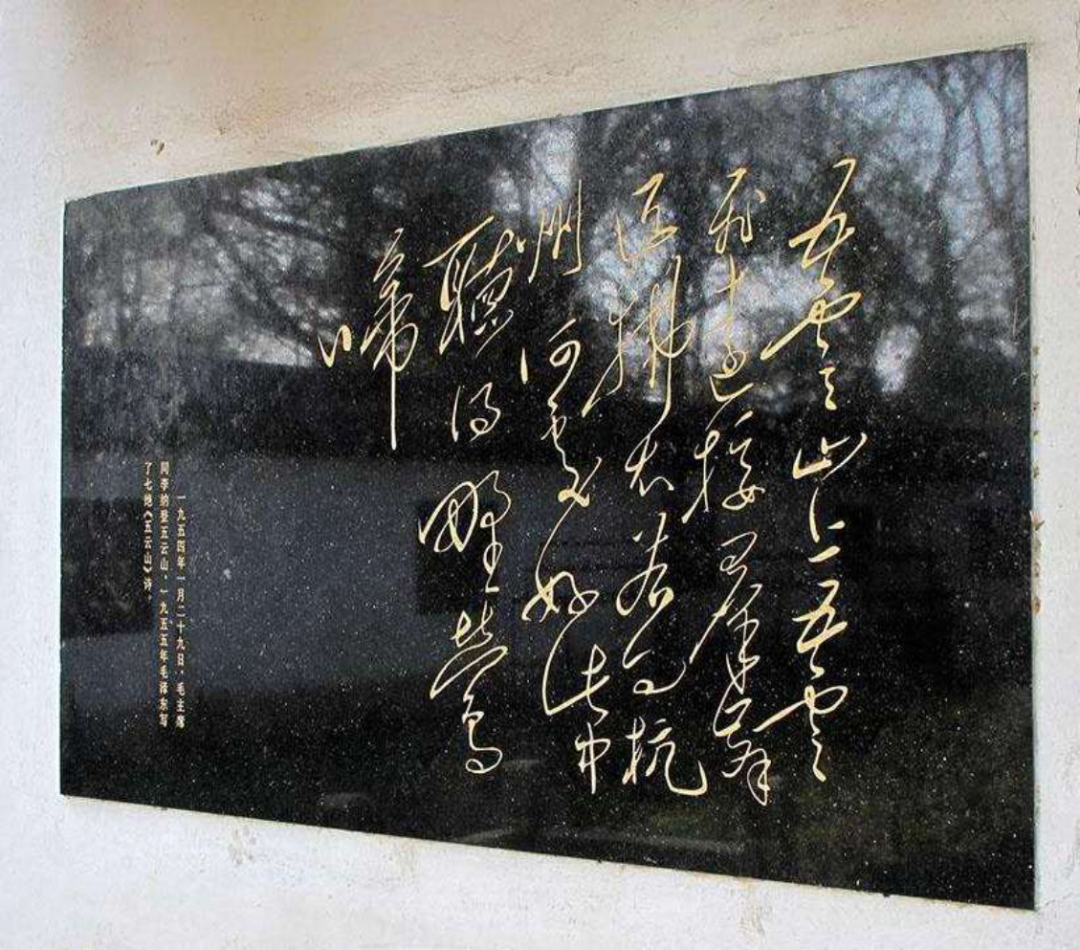 五雲山上五雲
飛遠接群峯
近拂堤若问杭
州何處好此中
聽得野鶯
啼
一九五四年一月二十九日，毛主席
同李纳登五云山，一九五五年毛泽东写
了七绝《五云山》诗。